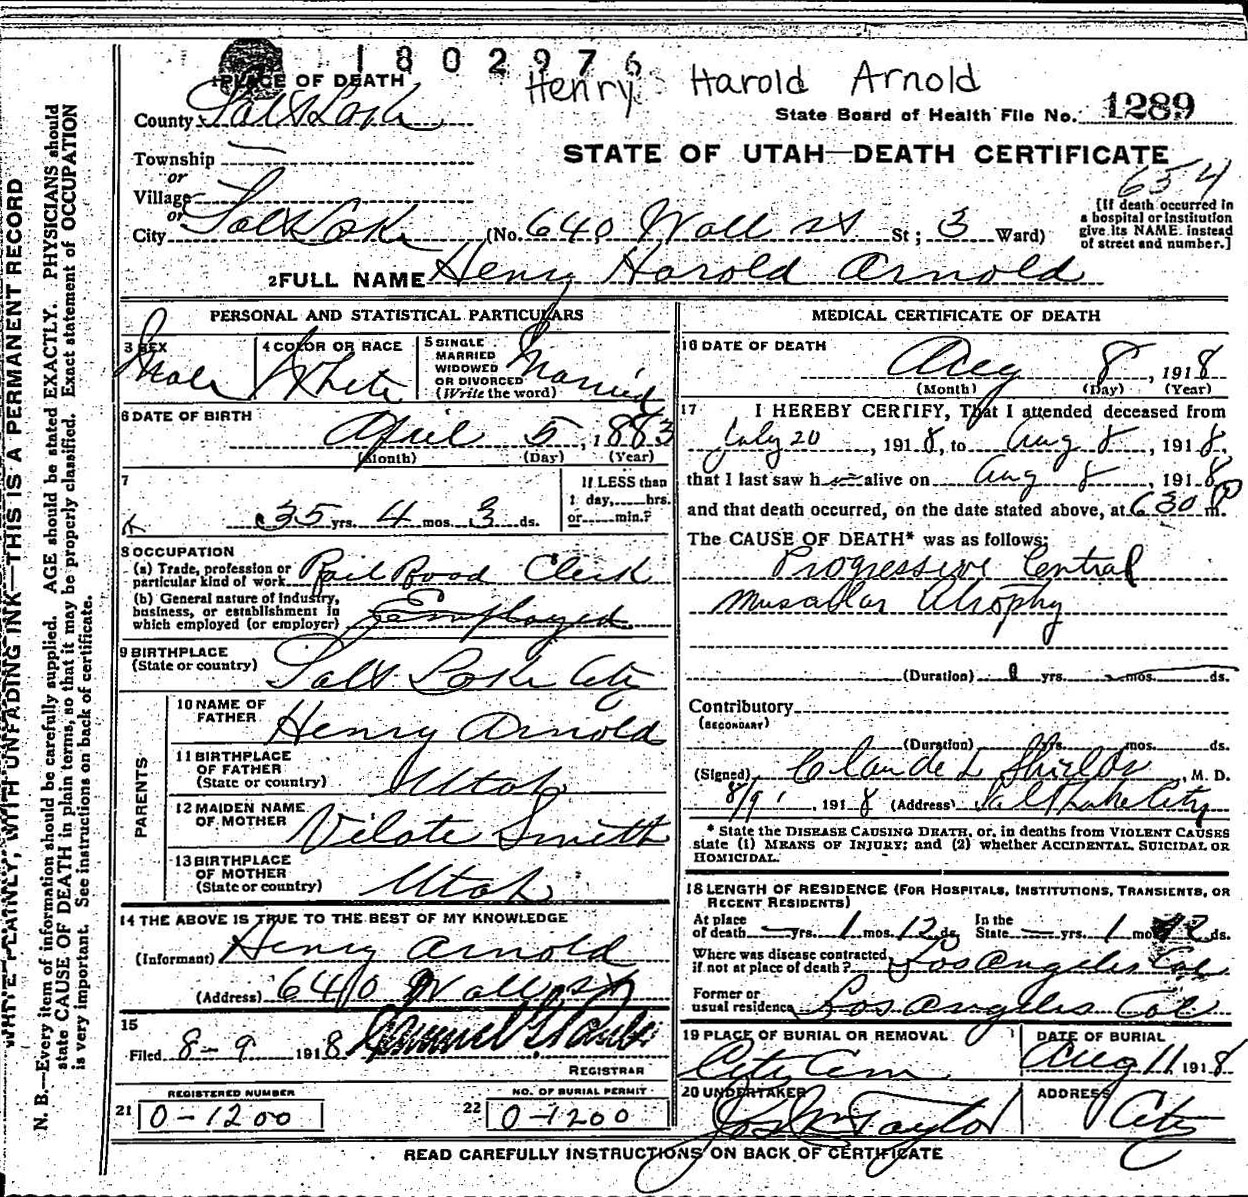 1802976
Henry Harold Arnold
1 PLACE OF DEATH
State Board of Health File No. 1289
County Salt Lake
STATE OF UTAH—DEATH CERTIFICATE
Township —
or
654
Village
or
[If death occurred in
a hospital or institution
give its NAME instead
of street and number.]
City Salt Lake (No. 640 Wall st St; 3 Ward)
2 FULL NAME Henry Harold Arnold
PERSONAL AND STATISTICAL PARTICULARS
3 SEX Male
4 COLOR OR RACE White
5 SINGLE
MARRIED
WIDOWED
OR DIVORCED
(Write the word) Married
6 DATE OF BIRTH
April 5, 1883
(Month) (Day) (Year)
7
35 yrs. 4 mos. 3 ds.
If LESS than
1 day, hrs.
or min.?
8 OCCUPATION
(a) Trade, profession or
particular kind of work Rail Road Clerk
(b) General nature of Industry,
business, or establishment in
which employed (or employer) Employed
9 BIRTHPLACE
(State or country) Salt Lake City
PARENTS
10 NAME OF
FATHER Henry Arnold
11 BIRTHPLACE
OF FATHER
(State or country) Utah
12 MAIDEN NAME
OF MOTHER Vilate Smith
13 BIRTHPLACE
OF MOTHER
(State or country) Utah
14 THE ABOVE IS TRUE TO THE BEST OF MY KNOWLEDGE
(Informant) Henry Arnold
(Address) 640 Wall st
15
Filed 8-9 1918
REGISTRAR
REGISTERED NUMBER
21 0-1200
NO. OF BURIAL PERMIT
22 0-1200
MEDICAL CERTIFICATE OF DEATH
16 DATE OF DEATH
Aug 8, 1918
(Month) (Day) (Year)
17 I HEREBY CERTIFY, That I attended deceased from
July 20, 1918, to Aug 8, 1918,
that I last saw h alive on Aug 8, 1918
and that death occurred, on the date stated above, at 630 P m.
The CAUSE OF DEATH* was as follows:
Progressive Central
Muscular Atrophy
(Duration) yrs. mos. ds.
Contributory
(SECONDARY)
(Duration) yrs. mos. ds.
(Signed) Claude L Shields, M. D.
8/9, 1918 (Address) Salt Lake City
* State the DISEASE CAUSING DEATH, or, in deaths from VIOLENT CAUSES
state (1) MEANS OF INJURY; and (2) whether ACCIDENTAL, SUICIDAL OR
HOMICIDAL.
18 LENGTH OF RESIDENCE (FOR HOSPITALS, INSTITUTIONS, TRANSIENTS, OR
RECENT RESIDENTS)
At place
of death — yrs. 1 mos. 12 ds.
In the
State — yrs. 1 mos 12 ds.
Where was disease contracted,
if not at place of death? Los Angeles Cal
Former or
usual residence Los Angeles Cal
19 PLACE OF BURIAL OR REMOVAL
City Cem
DATE OF BURIAL
Aug 11 1918
20 UNDERTAKER
Jos Wm Taylor
ADDRESS
City
READ CAREFULLY INSTRUCTIONS ON BACK OF CERTIFICATE
WRITE PLAINLY, WITH UNFADING INK—THIS IS A PERMANENT RECORD
N. B.—Every item of information should be carefully supplied. AGE should be stated EXACTLY. PHYSICIANS should
state CAUSE OF DEATH in plain terms, so that it may be properly classified. Exact statement of OCCUPATION
is very important. See instructions on back of certificate.